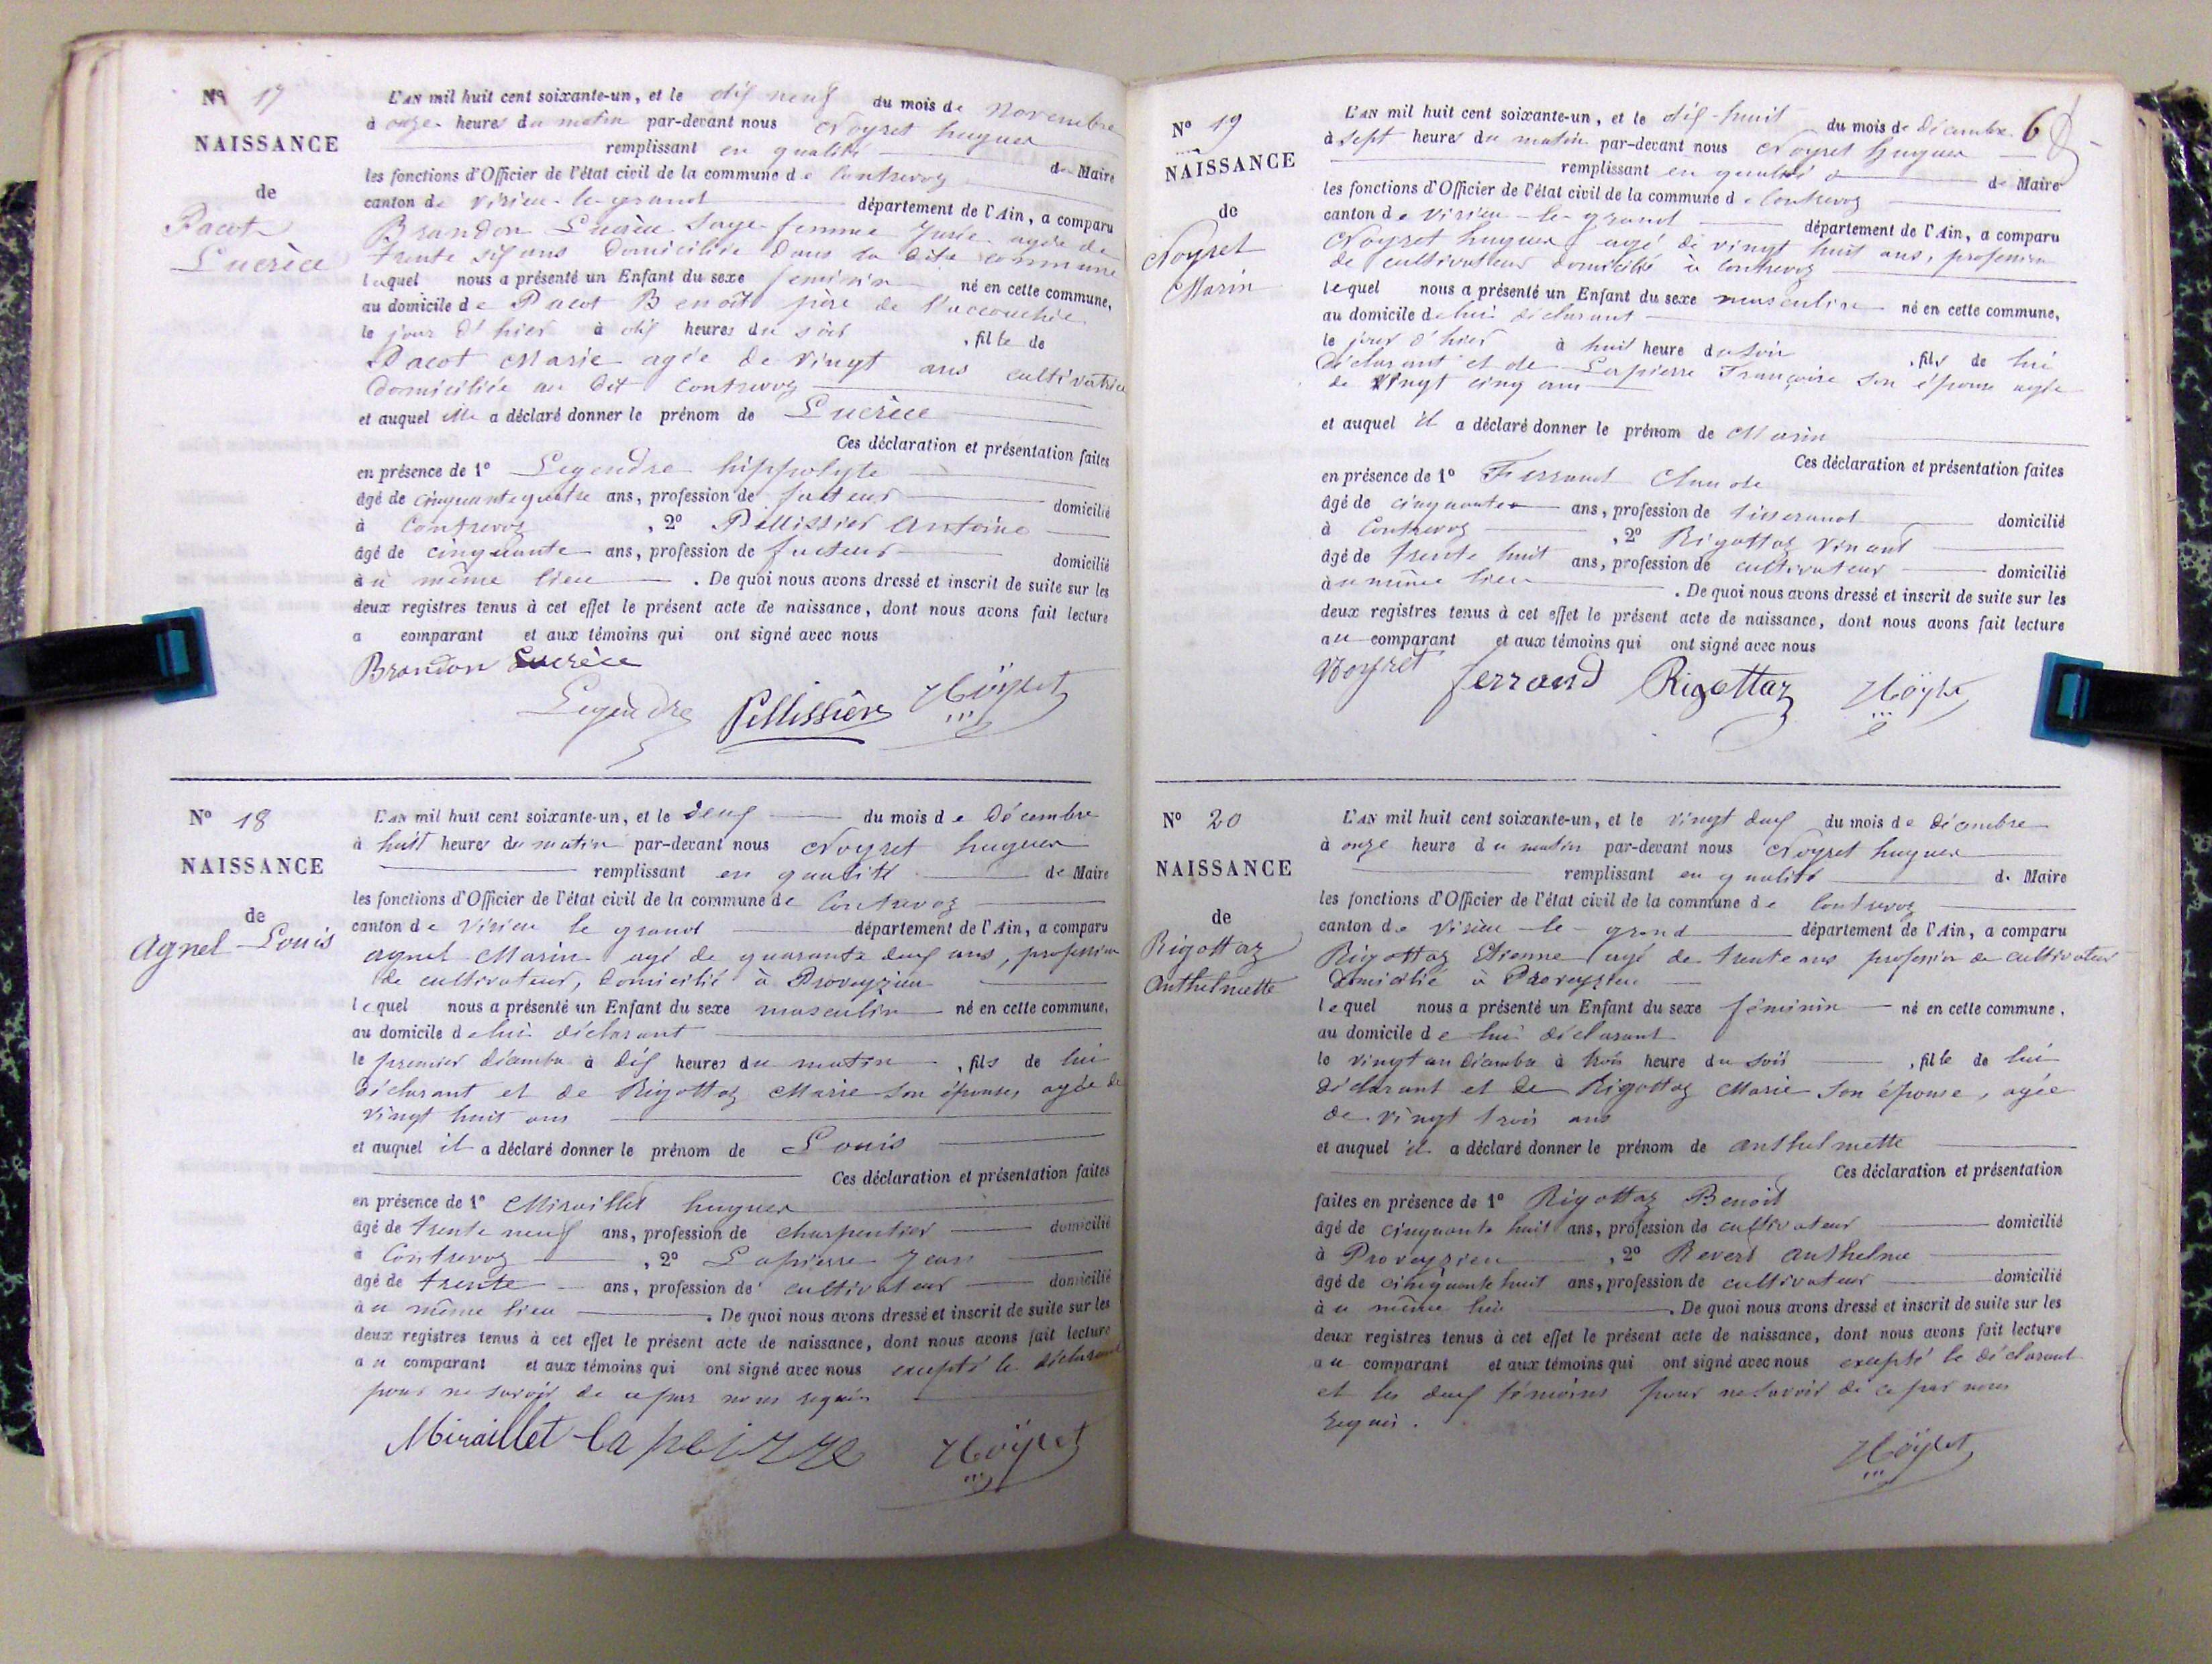 Nº 17
NAISSANCE
de
Pacot
Lucrèce
L'AN mil huit cent soixante-un, et le dix neuf du mois de Novembre
à onze heures du matin par-devant nous Noyret hugues
remplissant en qualité de Maire
les fonctions d'Officier de l'état civil de la commune de Contrevoz
canton de Virieu-le-grand département de l'Ain, a comparu
Brandon Lucrèce Sage femme Jurée agée de
trente six ans Domiciliée dans la dite commune
laquel nous a présenté un Enfant du sexe feminin né en cette commune,
au domicile de Pacot Benoît père de l'accouchée
le jour d'hier à dix heures du soir , fille de
Pacot Marie agée de vingt ans cultivatrice
Domiciliée au dit Contrevoz
et auquel elle a déclaré donner le prénom de Lucrèce
Ces déclaration et présentation faites
en présence de 1º Legendre hippolyte
âgé de cinquante quatre ans, profession de facteur domicilié
à Contrevoz , 2º Pellissier Antoine
âgé de cinquante ans, profession de facteur domicilié
au même lieu . De quoi nous avons dressé et inscrit de suite sur les
deux registres tenus à cet effet le présent acte de naissance, dont nous avons fait lecture
a comparant et aux témoins qui ont signé avec nous
Brandon Lucrèce
Legendre Pellissier Nöyret
Nº 18
NAISSANCE
de
Agnel Louis
L'AN mil huit cent soixante-un, et le deux du mois de Décembre
à huit heures du matin par-devant nous Noyret hugues
remplissant en qualité de Maire
les fonctions d'Officier de l'état civil de la commune de Contrevoz
canton de Virieu le grand département de l'Ain, a comparu
agnel Marin agé de quarante deux ans, profession
de cultivateur, Domicilié à Proveyzieu
lequel nous a présenté un Enfant du sexe masculin né en cette commune,
au domicile de lui déclarant
le premier décembre à dix heures du matin , fils de lui
déclarant et de Rigottaz Marie son épouse, agée de
vingt huit ans
et auquel il a déclaré donner le prénom de Louis
Ces déclaration et présentation faites
en présence de 1º Miraillet hugues
âgé de trente neuf ans, profession de charpentier domicilié
à Contrevoz , 2º Lapierre Jean
âgé de trente ans, profession de cultivateur domicilié
au même lieu . De quoi nous avons dressé et inscrit de suite sur les
deux registres tenus à cet effet le présent acte de naissance, dont nous avons fait lecture
au comparant et aux témoins qui ont signé avec nous excepté le déclarant
pour ne savoir de ce par nous requis
Miraillet lapeirre Nöyret
Nº 19
NAISSANCE
de
Noyret
Marin
6
L'AN mil huit cent soixante-un, et le dix-huit du mois de décembre
à sept heures du matin par-devant nous Noyret hugues
remplissant en qualité de Maire
les fonctions d'Officier de l'état civil de la commune de Contrevoz
canton de Virieu-le-grand département de l'Ain, a comparu
Noyret hugues agé de vingt huit ans, profession
de cultivateur domicilié à Contrevoz
lequel nous a présenté un Enfant du sexe masculin né en cette commune,
au domicile de lui déclarant
le jour d'hier à huit heure du soir , fils de lui
déclarant et de Lapierre Françoise son épouse agée
de vingt cinq ans
et auquel il a déclaré donner le prénom de Marin
Ces déclaration et présentation faites
en présence de 1º Ferrand Claude
âgé de cinquante ans, profession de tisserand domicilié
à Contrevoz , 2º Rigottaz Vinant
âgé de trente huit ans, profession de cultivateur domicilié
au même lieu . De quoi nous avons dressé et inscrit de suite sur les
deux registres tenus à cet effet le présent acte de naissance, dont nous avons fait lecture
au comparant et aux témoins qui ont signé avec nous
Noyret ferrand Rigottaz Nöyret
Nº 20
NAISSANCE
de
Rigottaz
Anthelmette
L'AN mil huit cent soixante-un, et le vingt deux du mois de décembre
à onze heure du matin par-devant nous Noyret hugues
remplissant en qualité de Maire
les fonctions d'Officier de l'état civil de la commune de Contrevoz
canton de Virieu-le-grand département de l'Ain, a comparu
Rigottaz Etienne agé de trente ans profession de cultivateur
Domicilié à Proveyzieu
lequel nous a présenté un Enfant du sexe féminin né en cette commune.
au domicile de lui déclarant
le vingt un décembre à trois heure du soir , fille de lui
déclarant et de Rigottaz Marie son épouse, agée
de vingt trois ans
et auquel il a déclaré donner le prénom de anthelmette
Ces déclaration et présentation
faites en présence de 1º Rigottaz Benoit
âgé de cinquante huit ans, profession de cultivateur domicilié
à Proveyzieu , 2º Revert Anthelme
âgé de cinquante huit ans, profession de cultivateur domicilié
au même lieu . De quoi nous avons dressé et inscrit de suite sur les
deux registres tenus à cet effet le présent acte de naissance, dont nous avons fait lecture
au comparant et aux témoins qui ont signé avec nous excepté le déclarant
et les deux témoins pour ne savoir de ce par nous
requis.
Nöyret